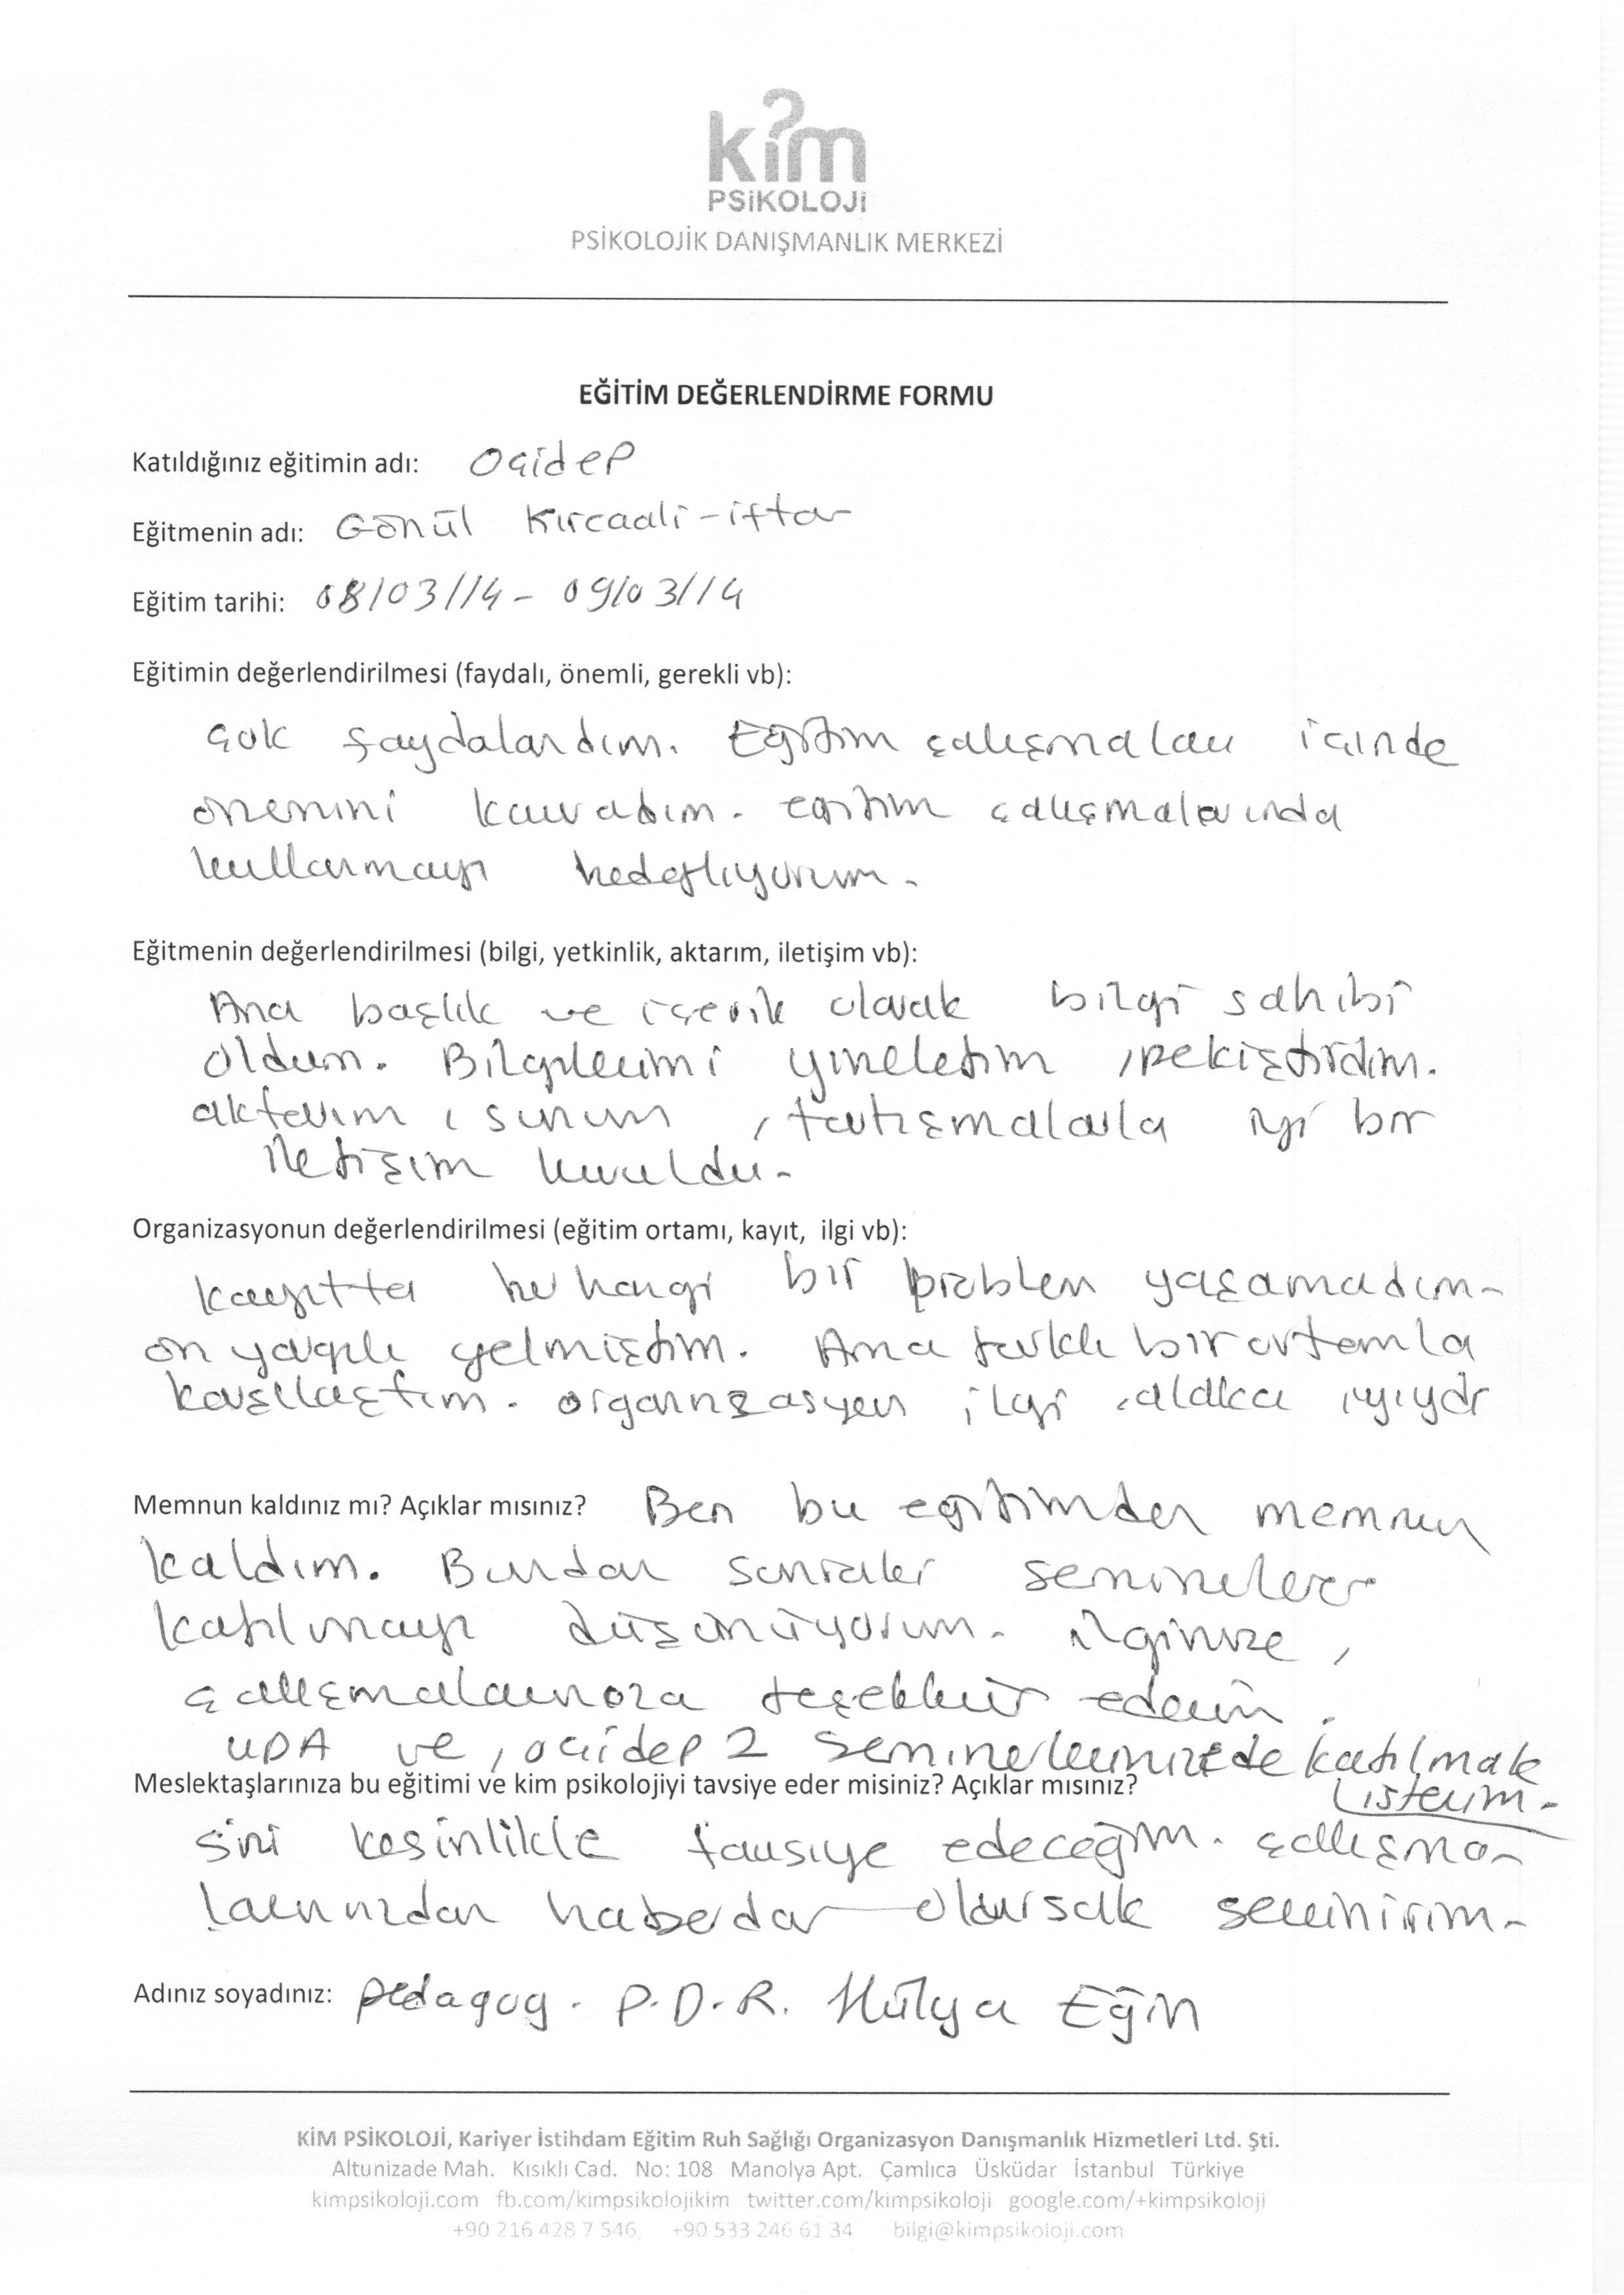 kim
PSiKOLOJi
PSİKOLOJİK DANIŞMANLIK MERKEZİ
EĞİTİM DEĞERLENDİRME FORMU
Katıldığınız eğitimin adı: OÇİDEP
Eğitmenin adı: Gönül Kırcaali-iftar
Eğitim tarihi: 08/03/14 - 09/03/14
Eğitimin değerlendirilmesi (faydalı, önemli, gerekli vb):
çok faydalandım. Eğitim çalışmaları içinde
önemini kavradım. eğitim çalışmalarında
kullanmayı hedefliyorum.
Eğitmenin değerlendirilmesi (bilgi, yetkinlik, aktarım, iletişim vb):
Ana başlık ve içerik olarak bilgi sahibi
oldum. Bilgilerimi yineledim, pekiştirdim.
aktarım, sunum, tartışmalarla iyi bir
iletişim kuruldu.
Organizasyonun değerlendirilmesi (eğitim ortamı, kayıt, ilgi vb):
kayıtta herhangi bir problem yaşamadım.
ön yargılı gelmiştim. Ama farklı bir ortamla
karşılaştım. organizasyon ilgi, alaka iyiydi
Memnun kaldınız mı? Açıklar mısınız? Ben bu eğitimden memnun
kaldım. Bundan sonraki seminerlere
katılmayı düşünüyorum. ilginize,
çalışmalarınıza teşekkür ederim.
UDA ve, oçidep 2 seminerlerinizede katılmak
isterim.
Meslektaşlarınıza bu eğitimi ve kim psikolojiyi tavsiye eder misiniz? Açıklar mısınız?
sizi kesinlikle tavsiye edeceğim. çalışma-
larınızdan haberdar olursak sevinirim.
Adınız soyadınız: pedagog. P.D.R. Hülya Eğin
KİM PSİKOLOJİ, Kariyer İstihdam Eğitim Ruh Sağlığı Organizasyon Danışmanlık Hizmetleri Ltd. Şti.
Altunizade Mah. Kısıklı Cad. No: 108 Manolya Apt. Çamlıca Üsküdar İstanbul Türkiye
kimpsikoloji.com fb.com/kimpsikolojikim twitter.com/kimpsikoloji google.com/+kimpsikoloji
+90 216 428 7 546, +90 533 246 61 34 bilgi@kimpsikoloji.com